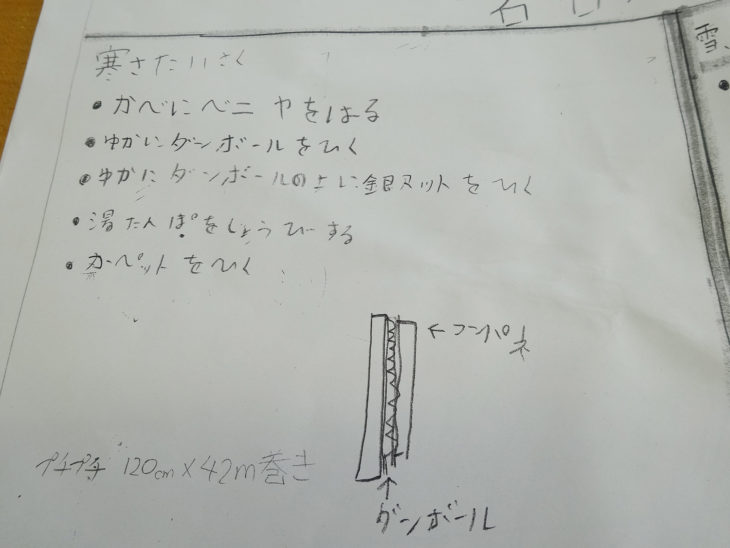 寒さたいさく
・かべにベニヤをはる
・ゆかにダンボールをひく
・ゆかにダンボールの上に銀マットをひく
・湯たんぽをしようひーする
・カーペットをひく
←コンパネ
プチプチ 120cm×42m巻き
↑
ダンボール
雪